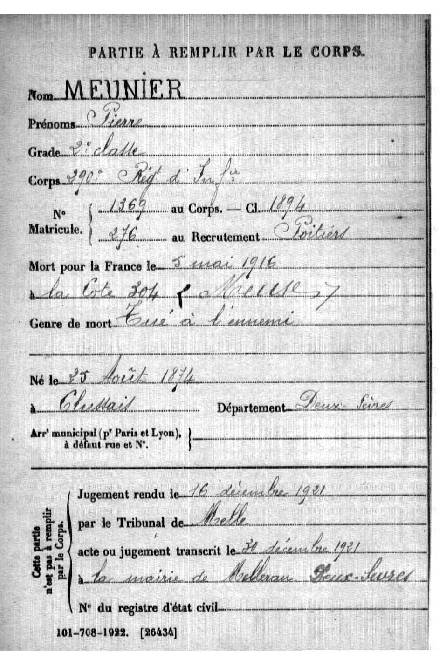 PARTIE À REMPLIR PAR LE CORPS.
Nom MEUNIER
Prénoms Pierre
Grade 2e classe
Corps 290e Rég d'Infie
N° Matricule. { 1369 au Corps. — Cl. 1894
276 au Recrutement Poitiers
Mort pour la France le 5 mai 1916
à la Cote 304 ( Meuse )
Genre de mort Tué à l'ennemi
Né le 25 Août 1874
à Clussais Département Deux-Sèvres
Arrt municipal (pr Paris et Lyon), à défaut rue et N°.
Cette partie n'est pas à remplir par le Corps.
Jugement rendu le 16 décembre 1921
par le Tribunal de Melle
acte ou jugement transcrit le 30 décembre 1921
à la mairie de Melleran Deux-Sevres
N° du registre d'état civil
101-708-1922. [26434]